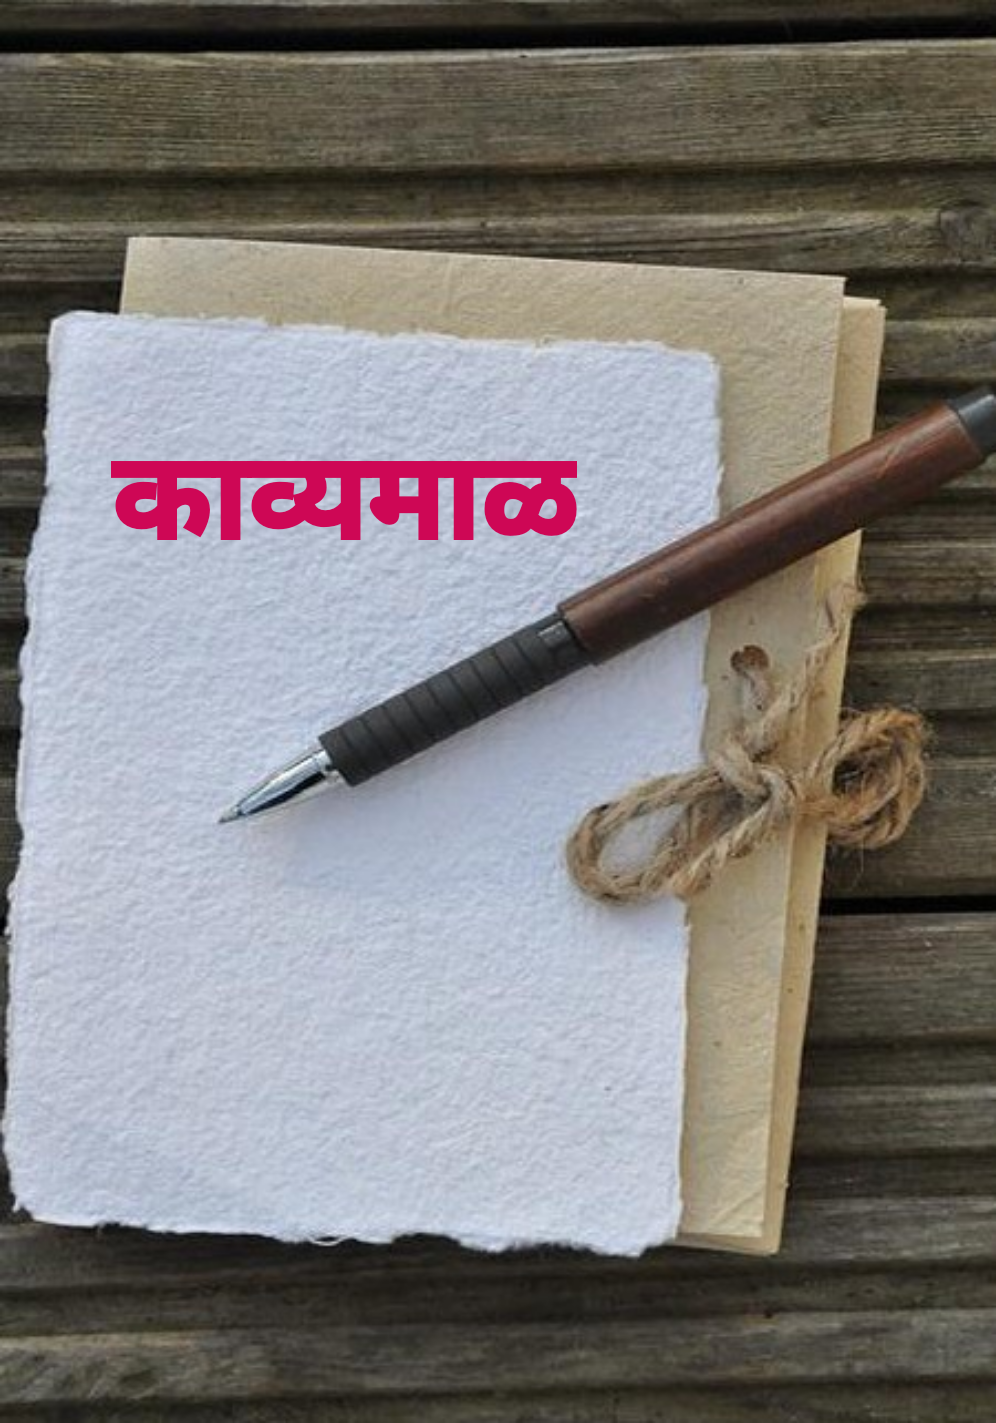 काव्यमाळ